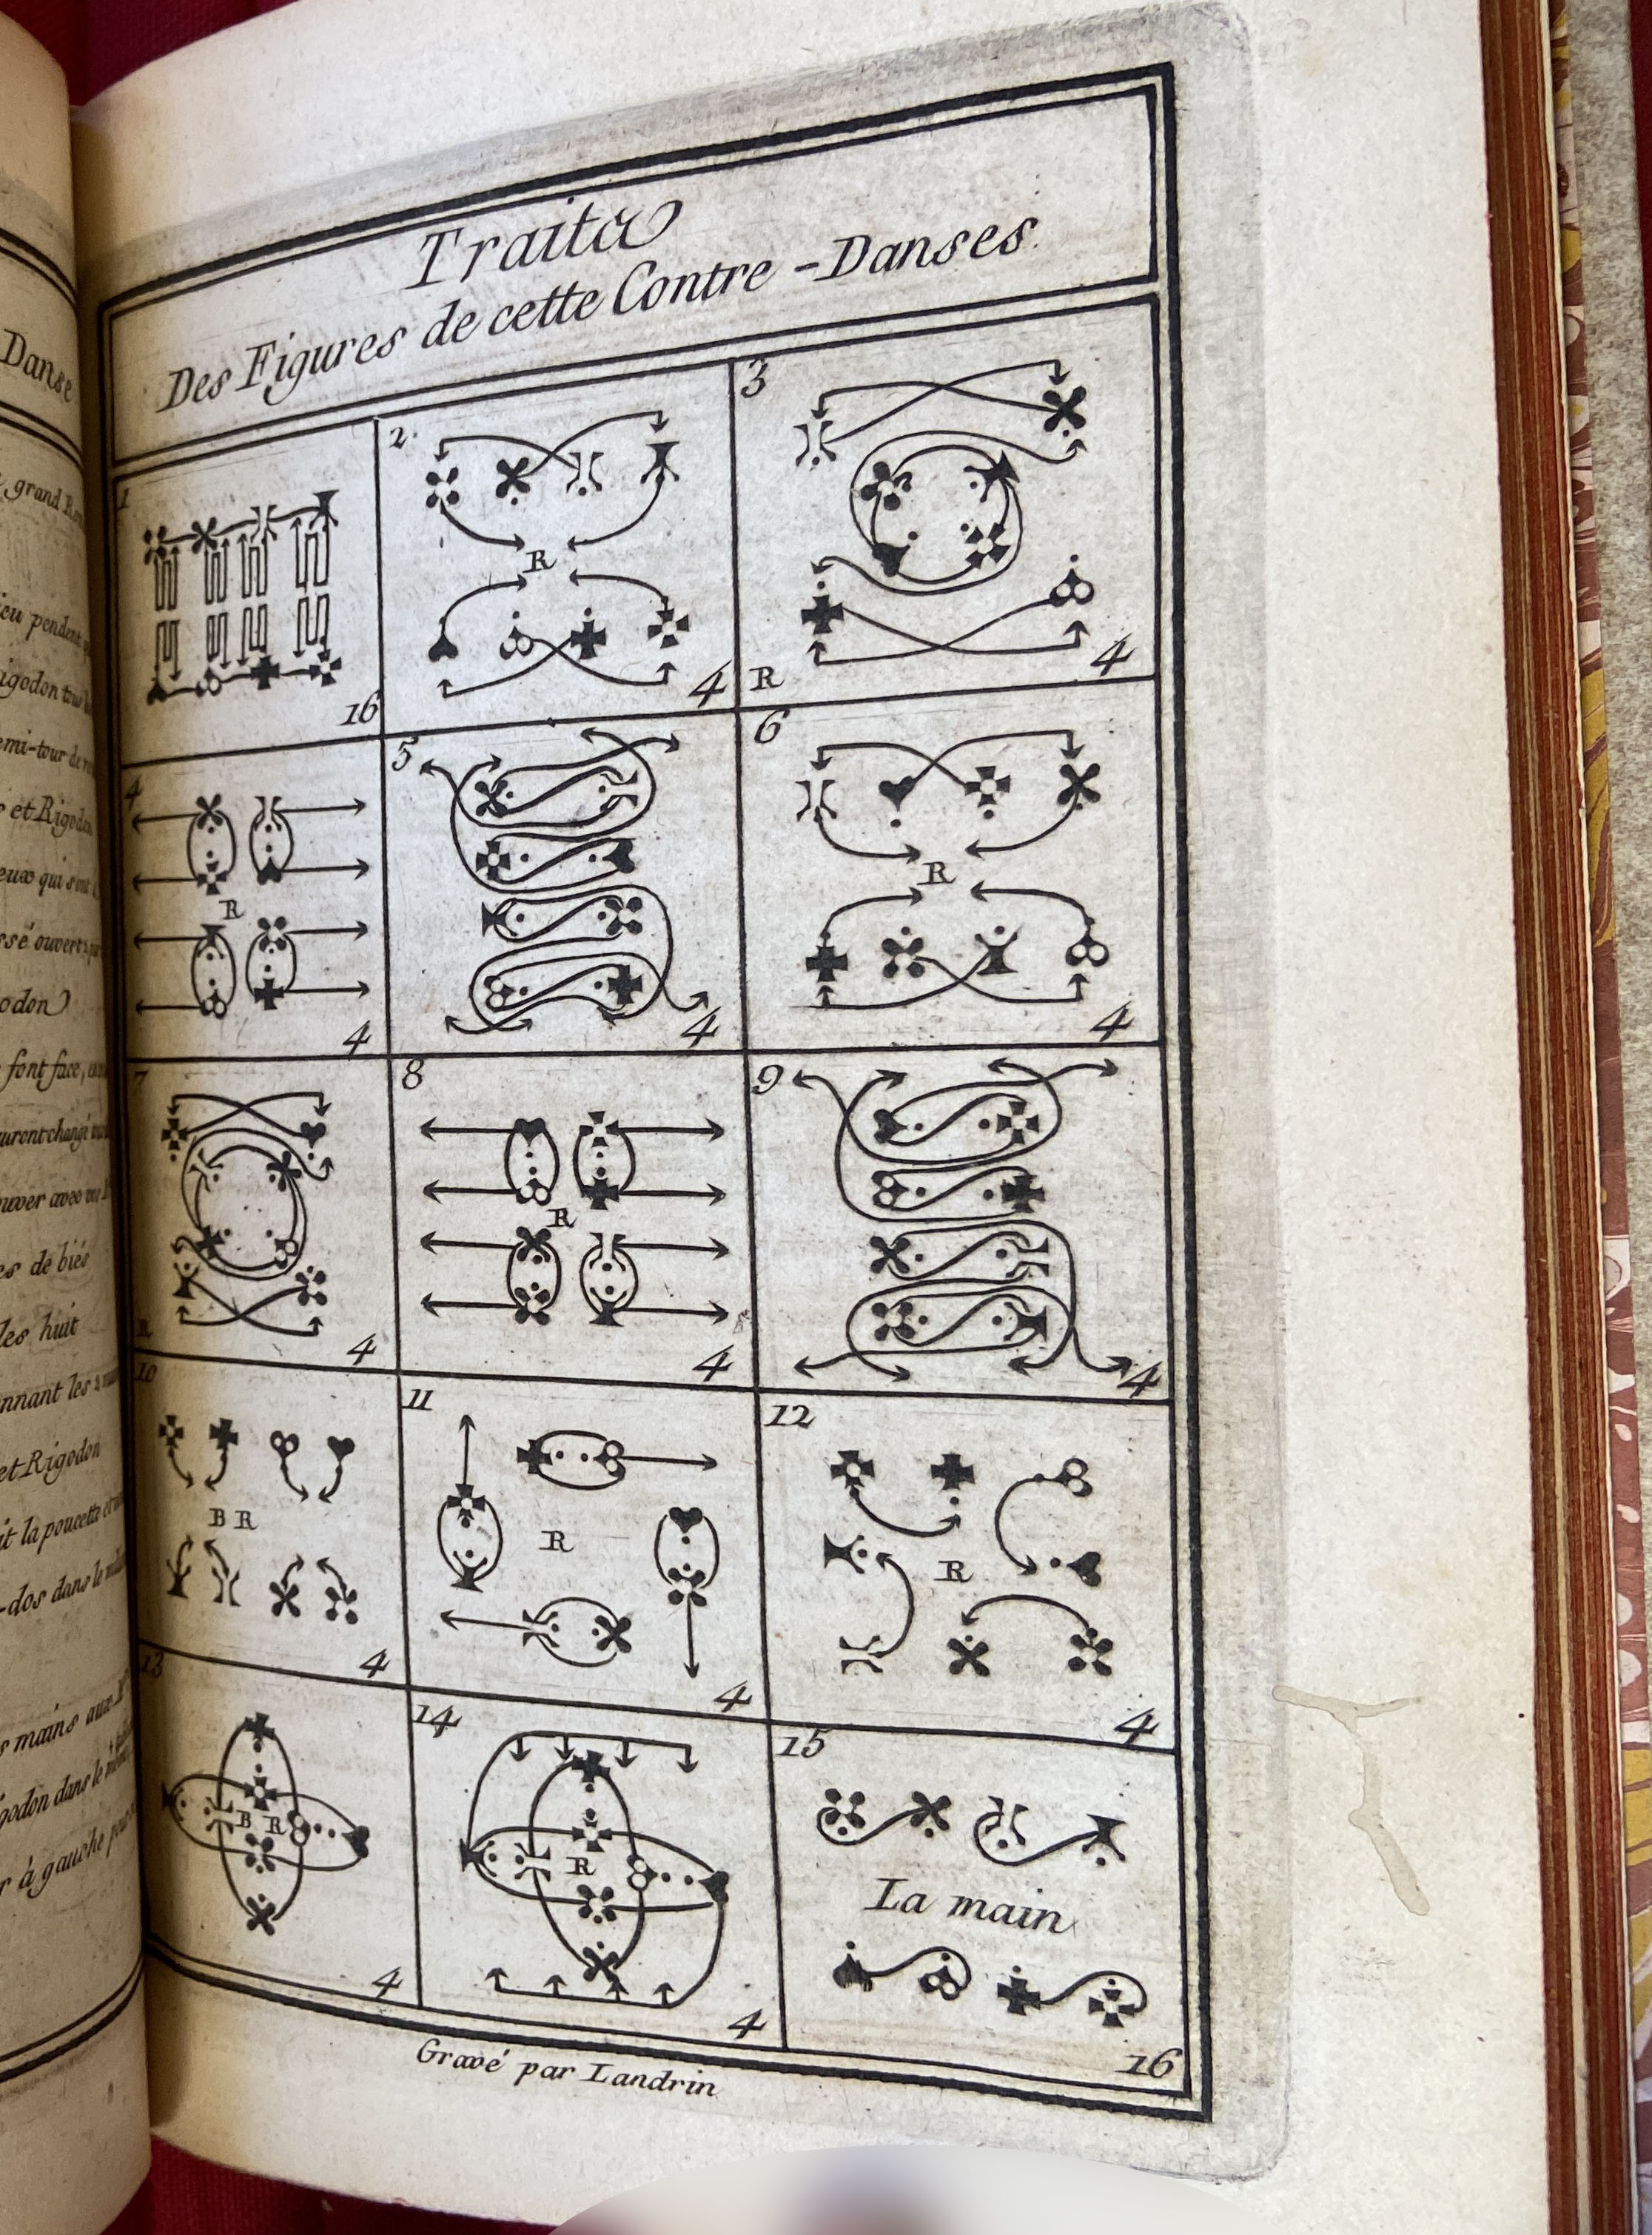 Danse
grand
pendent
Rigodon
emi-tour de
et Rigodon
eux qui sont
ssé ouvert
odon
font face,
auront changé
de biés
les huit
nnant les 2
et Rigodon
it la poucette et
-dos dans le
mains aux
godon dans le
r à gauche
Traité
Des Figures de cette Contre-Danses.
1
16
2.
R
4
3
R
4
4
R
4
5
4
6
R
4
7
R
4
8
R
4
9
4
10
B R
4
11
R
4
12
R
4
13
B R
4
14
R
4
15
La main
16
Gravé par Landrin